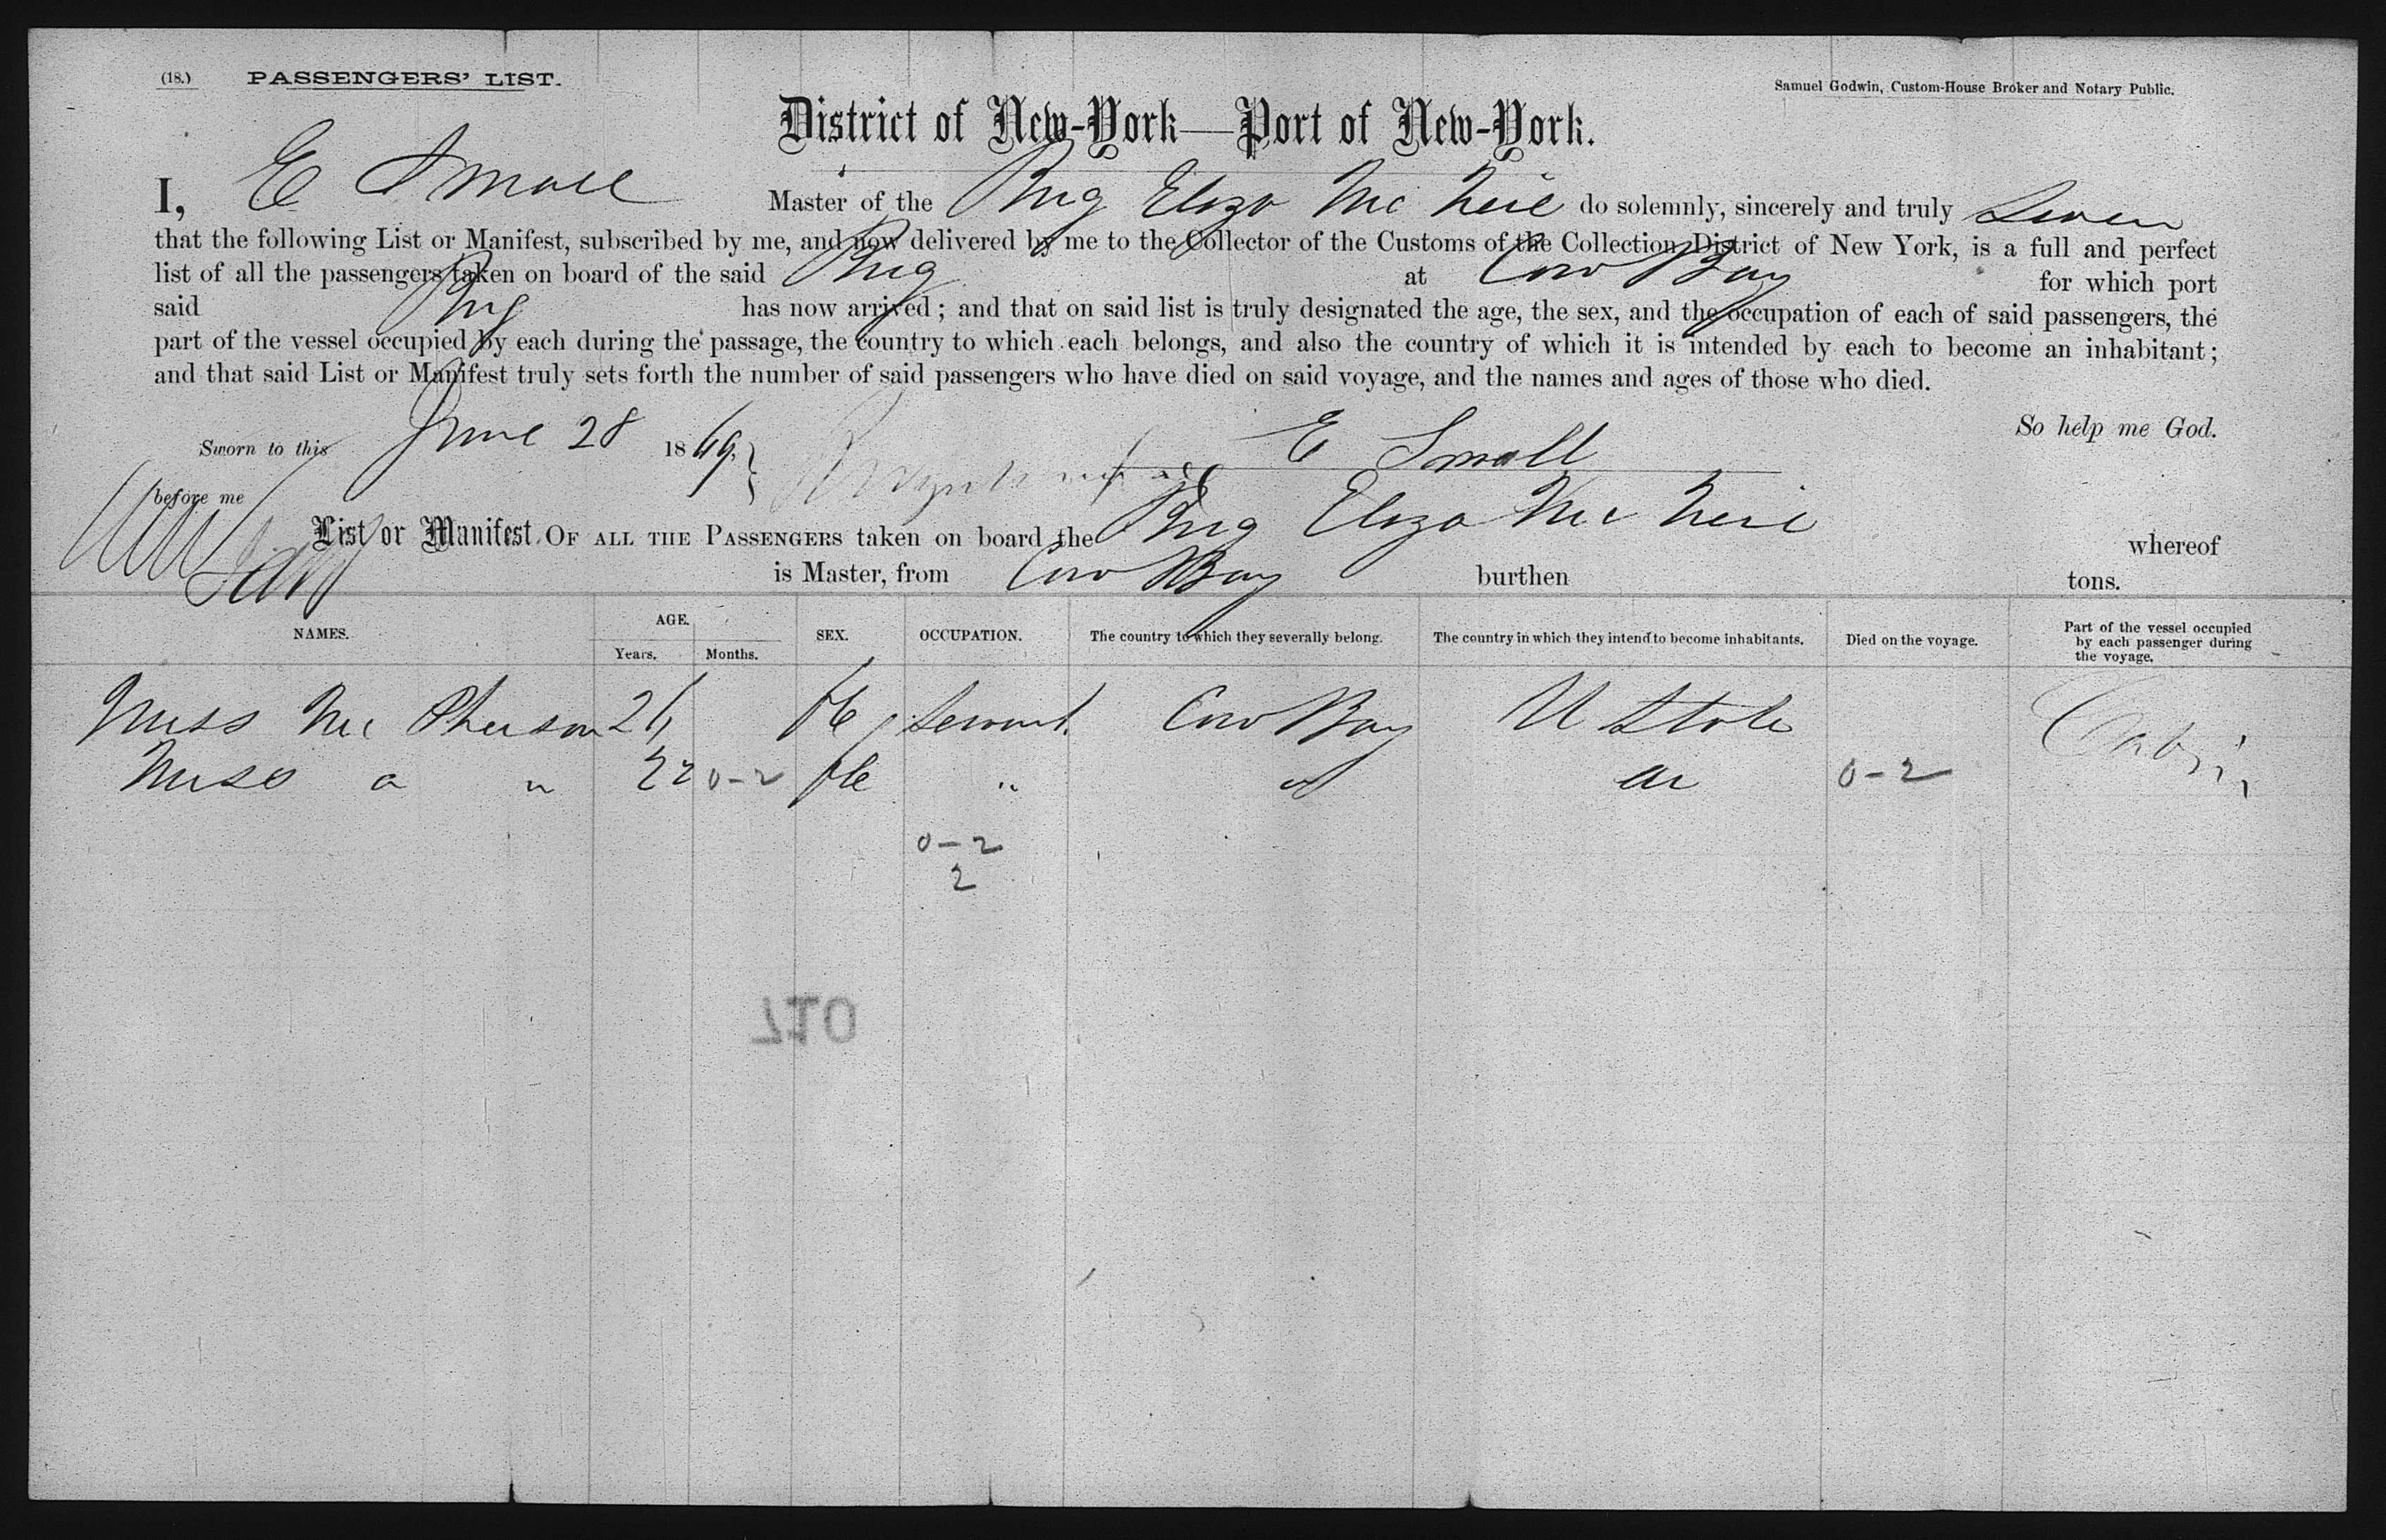 (18.) PASSENGERS' LIST.
Samuel Godwin, Custom-House Broker and Notary Public.
District of New-York—Port of New-York.
I, E Small Master of the Brig Eliza Mc Neil do solemnly, sincerely and truly Swear
that the following List or Manifest, subscribed by me, and now delivered by me to the Collector of the Customs of the Collection District of New York, is a full and perfect
list of all the passengers taken on board of the said Brig at Cow Bay for which port
said Brig has now arrived; and that on said list is truly designated the age, the sex, and the occupation of each of said passengers, the
part of the vessel occupied by each during the passage, the country to which each belongs, and also the country of which it is intended by each to become an inhabitant;
and that said List or Manifest truly sets forth the number of said passengers who have died on said voyage, and the names and ages of those who died.
So help me God.
Sworn to this June 28 1869. E Small
before me
List or Manifest OF ALL THE PASSENGERS taken on board the Brig Eliza Mc Neil whereof
is Master, from Cow Bay burthen tons.
NAMES. AGE. Years. Months. SEX. OCCUPATION. The country to which they severally belong. The country in which they intend to become inhabitants. Died on the voyage. Part of the vessel occupied by each passenger during the voyage.
Miss Mc Pherson 26 Fe Servant Cow Bay U State Cabin
Miss " " 22 0-2 Fe " " " 0-2
0-2
2
710